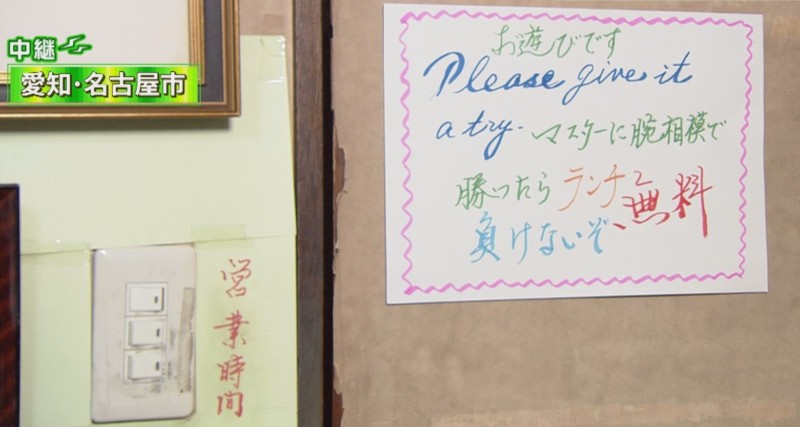 中継
愛知・名古屋市
お遊びです
Please give it
a try. マスターに腕相撲で
勝ったら ランチ 無料
負けないぞ
営業時間